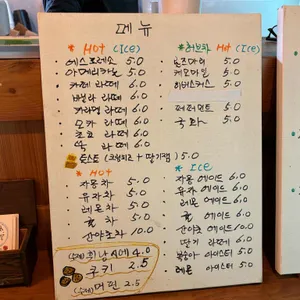 메뉴
* Hot (Ice)
· 에스프레소 5.0
· 아메리카노 5.0
· 카페 라떼 6.0
· 바닐라 라떼 6.0
· 카라멜 라떼 6.0
· 모카 라떼 6.0
· 초코 라떼 6.0
· 쑥 라떼 6.0
토스트 (크림치즈 + 딸기잼) 5.0
* 허브차 Hot (Ice)
· 로즈마리 5.0
· 케모마일 5.0
· 히비스커스 5.0
· 페퍼민트 5.0
· 국화 5.0
* Hot
· 자몽차 5.0
· 유자차 5.0
· 레몬차 5.0
· 차 5.0
· 산야초차 10.0
(수제) 4.0
쿠키 2.5
(수제) 머핀 2.5
* Ice
· 자몽 에이드 6.0
· 유자 에이드 6.0
· 레몬 에이드 6.0
· 에이드 6.0
· 산야초 에이드 10.0
· 딸기 라떼 6.0
· 복숭아 아이스티 5.0
· 레몬 아이스티 5.0